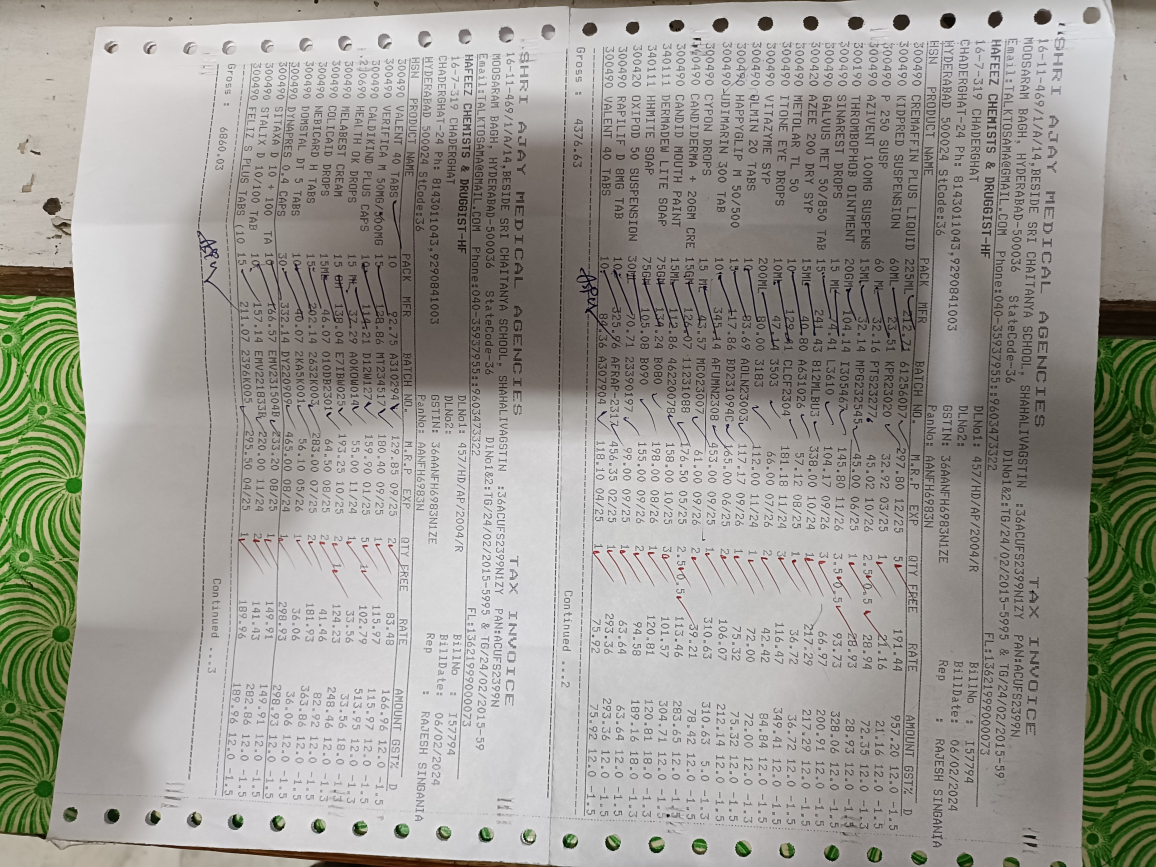 SHRI AJAY MEDICAL AGENCIES TAX INVOICE
16-11-469/1/A/14,BESIDE SRI CHAITANYA SCHOOL, SHAHALIVAGSTIN :36ACUFS2399N1ZY PAN:ACUFS2399N
MOOSARAM BAGH, HYDERABAD-500036 StateCode-36 DlNo1&2:TG/24/02/2015-5995 & TG/24/02/2015-59
Email:TALKTOSAMA@GMAIL.COM Phone:040-35937955::9603473322 FL:13621999000073
HAFEEZ CHEMISTS & DRUGGIST-HF DLNo1: 457/HD/AP/2004/R BillNo : I57794
16-7-319 CHADERGHAT DLNo2: BillDate: 06/02/2024
CHADERGHAT-24 Ph: 8143011043,9290841003 GSTIN: 36AANFH6983N1ZE Rep : RAJESH SINGANIA
HYDERABAD 500024 StCode:36 PanNo: AANFH6983N
HSN PRODUCT NAME PACK MFR BATCH NO. M.R.P EXP QTY FREE RATE AMOUNT GST% D
300490 CREMAFFIN PLUS LIQUID 225ML 212.71 612560D7 297.80 12/25 5 191.44 957.20 12.0 -1.5
300490 KIDPRED SUSPENSION 60ML 23.51 KPR23020 32.92 03/25 1 21.16 21.16 12.0 -1.5
300490 P 250 SUSP 60 M 32.16 PTS23277 45.02 10/26 2.5 0.5 28.94 72.35 12.0 -1.5
300490 AZIVENT 100MG SUSPENS 15ML 32.14 MPG232545 45.00 06/25 1 28.93 28.93 12.0 -1.5
300190 THROMBOPHOB OINTMENT 20GM 104.14 I305447 145.80 11/26 3.5 0.5 93.73 328.06 12.0 -1.5
300490 SINAREST DROPS 15 ML 74.41 L3610 104.17 09/26 3 66.97 200.91 12.0 -1.5
300490 GALVUS MET 50/850 TAB 15 241.43 B12MLBU3 338.00 10/24 1 217.29 217.29 12.0 -1.5
300420 AZEE 200 DRY SYP 15ML 40.80 A631026 57.12 08/25 1 36.72 36.72 12.0 -1.5
300490 METOLAR TL 50 10 129.41 CLCF2304 181.18 11/24 3 116.47 349.41 12.0 -1.5
300490 ITONE EYE DROPS 10ML 47.14 3503 66.00 07/26 2 42.42 84.84 12.0 -1.5
300490 VITAZYME SYP 200ML 80.00 3183 112.00 11/24 1 72.00 72.00 12.0 -1.5
300490 GLIMIN 20 TABS 10 83.69 AGLN23003 117.17 09/26 1 75.32 75.32 12.0 -1.5
300490 HAPPYGLIP M 50/500 15 117.86 BD231094C 165.00 06/25 2 106.07 212.14 12.0 -1.5
300490 UDIMARIN 300 TAB 10 345.14 AFUMN2308 453.00 09/25 1 310.63 310.63 5.0 -1.5
300490 CYPON DROPS 15 ML 43.57 MCO23007 61.00 09/26 2 39.21 78.42 12.0 -1.5
300490 CANDIDERMA + 20GM CRE 15GM 126.07 11231088 176.50 05/25 2.5 0.5 113.46 283.65 12.0 -1.5
300490 CANDID MOUTH PAINT 15ML 112.86 46220078 158.00 10/25 3 101.57 304.71 12.0 -1.5
340111 DERMADEW LITE SOAP 75GM 134.24 B080 198.00 08/26 1 120.81 120.81 18.0 -1.3
340111 HHMITE SOAP 75GM 105.08 B090 155.00 09/26 2 94.58 189.16 18.0 -1.3
300420 OXIPOD 50 SUSPENSION 30ML 70.71 23390197 99.00 09/25 1 63.64 63.64 12.0 -1.5
300490 RAPILIF D 8MG TAB 10 325.96 AFRAP-2317 456.35 02/25 1 293.36 293.36 12.0 -1.5
300490 VALENT 40 TABS 10 84.36 A307904 118.10 04/25 1 75.92 75.92 12.0 -1.5
Gross : 4376.63 Continued ...2
SHRI AJAY MEDICAL AGENCIES TAX INVOICE
16-11-469/1/A/14,BESIDE SRI CHAITANYA SCHOOL, SHAHALIVAGSTIN :36ACUFS2399N1ZY PAN:ACUFS2399N
MOOSARAM BAGH, HYDERABAD-500036 StateCode-36 DlNo1&2:TG/24/02/2015-5995 & TG/24/02/2015-59
Email:TALKTOSAMA@GMAIL.COM Phone:040-35937955::9603473322 FL:13621999000073
HAFEEZ CHEMISTS & DRUGGIST-HF DLNo1: 457/HD/AP/2004/R BillNo : I57794
16-7-319 CHADERGHAT DLNo2: BillDate: 06/02/2024
CHADERGHAT-24 Ph: 8143011043,9290841003 GSTIN: 36AANFH6983N1ZE Rep : RAJESH SINGANIA
HYDERABAD 500024 StCode:36 PanNo: AANFH6983N
HSN PRODUCT NAME PACK MFR BATCH NO. M.R.P EXP QTY FREE RATE AMOUNT GST% D
300490 VALENT 40 TABS 10 92.75 A310294 129.85 09/25 2 83.48 166.96 12.0 -1.5
300490 VERIFICA M 50MG/500MG 15 128.86 MT23451 180.40 09/25 1 115.97 115.97 12.0 -1.5
300490 CALDIKIND PLUS CAPS 10 114.21 D12W127 159.90 01/25 5 1 102.79 513.95 12.0 -1.5
210690 HEALTH OK DROPS 15 ML 37.29 AOKDW014 55.00 11/24 1 33.56 33.56 18.0 -1.3
300490 MELABEST CREAM 15 138.04 E7IBW025 193.25 10/25 2 124.23 248.46 12.0 -1.5
300490 COLICAID DROPS 15ML 46.07 010DB2301 64.50 08/25 2 41.46 82.92 12.0 -1.5
300490 NEBICARD H TABS 15 202.14 2632K002 283.00 07/25 2 181.93 363.86 12.0 -1.5
300490 DOMSTAL DT 5 TABS 10 40.07 2KA5K001 56.10 05/26 1 36.06 36.06 12.0 -1.5
300490 DYNAPRES 0.4 CAPS 30 332.14 DY22070 465.00 08/24 1 298.93 298.93 12.0 -1.5
300490 SITAXA D 10 + 100 TA 10 166.57 EMV231504B 233.20 08/25 1 149.91 149.91 12.0 -1.5
300490 STALIX D 10/100 TAB 10 157.14 EMV221833 220.00 11/24 2 141.43 282.86 12.0 -1.5
300490 FELIZ S PLUS TABS (10 15 211.07 2396K005 295.50 04/25 1 189.96 189.96 12.0 -1.5
Gross : 6860.03 Continued ...3